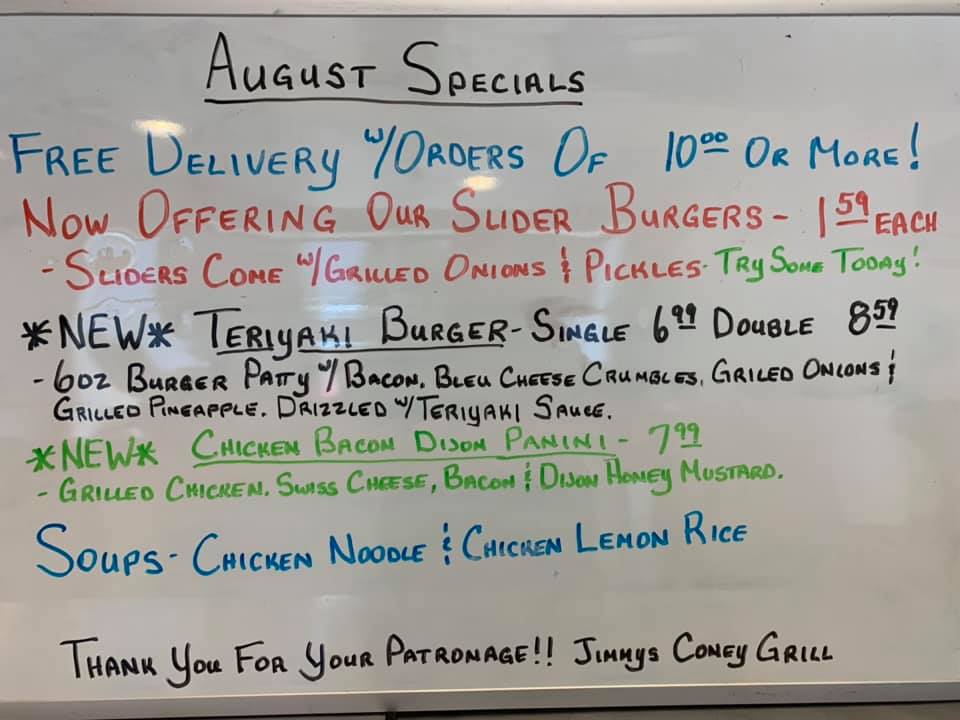 August Specials
Free Delivery w/Orders Of 10.00 Or More!
Now Offering Our Slider Burgers - 1.59 each
- Sliders Come w/Grilled Onions & Pickles - Try Some Today!
*NEW* Teriyaki Burger - Single 6.99 Double 8.59
- 6oz Burger Patty w/Bacon, Bleu Cheese Crumbles, Griled Onions &
Grilled Pineapple. Drizzled w/Teriyaki Sauce.
*NEW* Chicken Bacon Dijon Panini - 7.99
- Grilled Chicken, Swiss Cheese, Bacon & Dijon Honey Mustard.
Soups - Chicken Noodle & Chicken Lemon Rice
Thank You For Your Patronage!! Jimmys Coney Grill